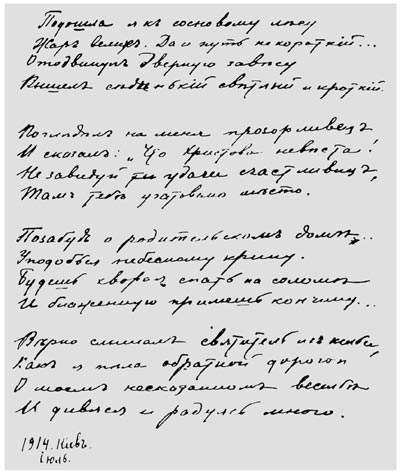 Подошла я къ сосновому лѣсу
Жаръ великъ. Да и путь не короткій...
Отодвинулъ дверную завѣсу
Вышелъ сѣденькій свѣтлый и кроткій.
Поглядѣлъ на меня прозорливецъ
И сказалъ: „Христова невѣста!
Не завидуй удачѣ счастливицъ,
Тамъ тебѣ уготовано мѣсто.
Позабудь о родительскомъ домѣ,..
Уподобься небесному крину.
Будешь хворая спать на соломѣ
И блаженную примешь кончину...
Вѣрно слышалъ святитель изъ кельи,
Какъ я пѣла обратной дорогой
О моемъ несказанномъ весельи
И дивясь и радуясь много.
1914. Кіевъ.
Іюль.